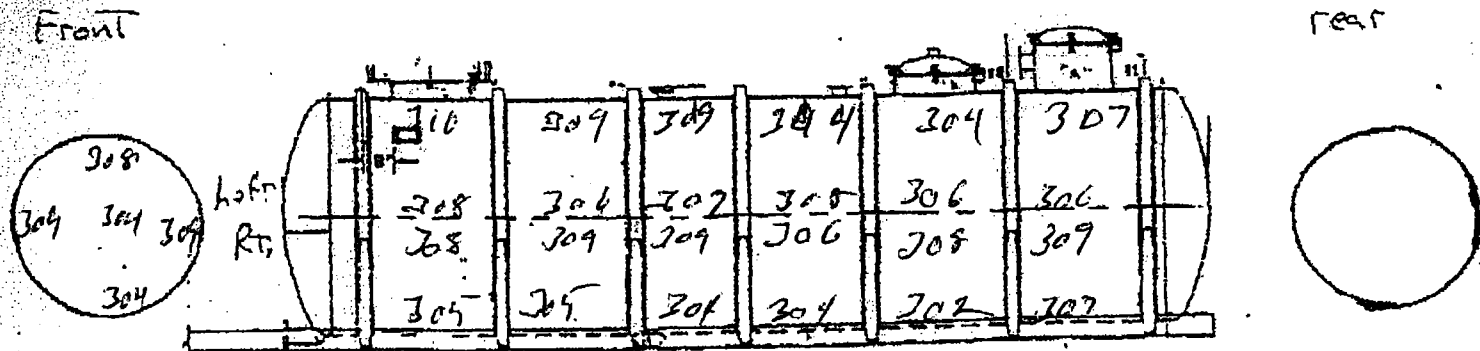 Front
rear
308
304 304 309
304
310 309 309 304 304 307
Left
308 306 302 308 306 306
Rt.
308 309 309 306 308 309
305 305 304 304 302 302